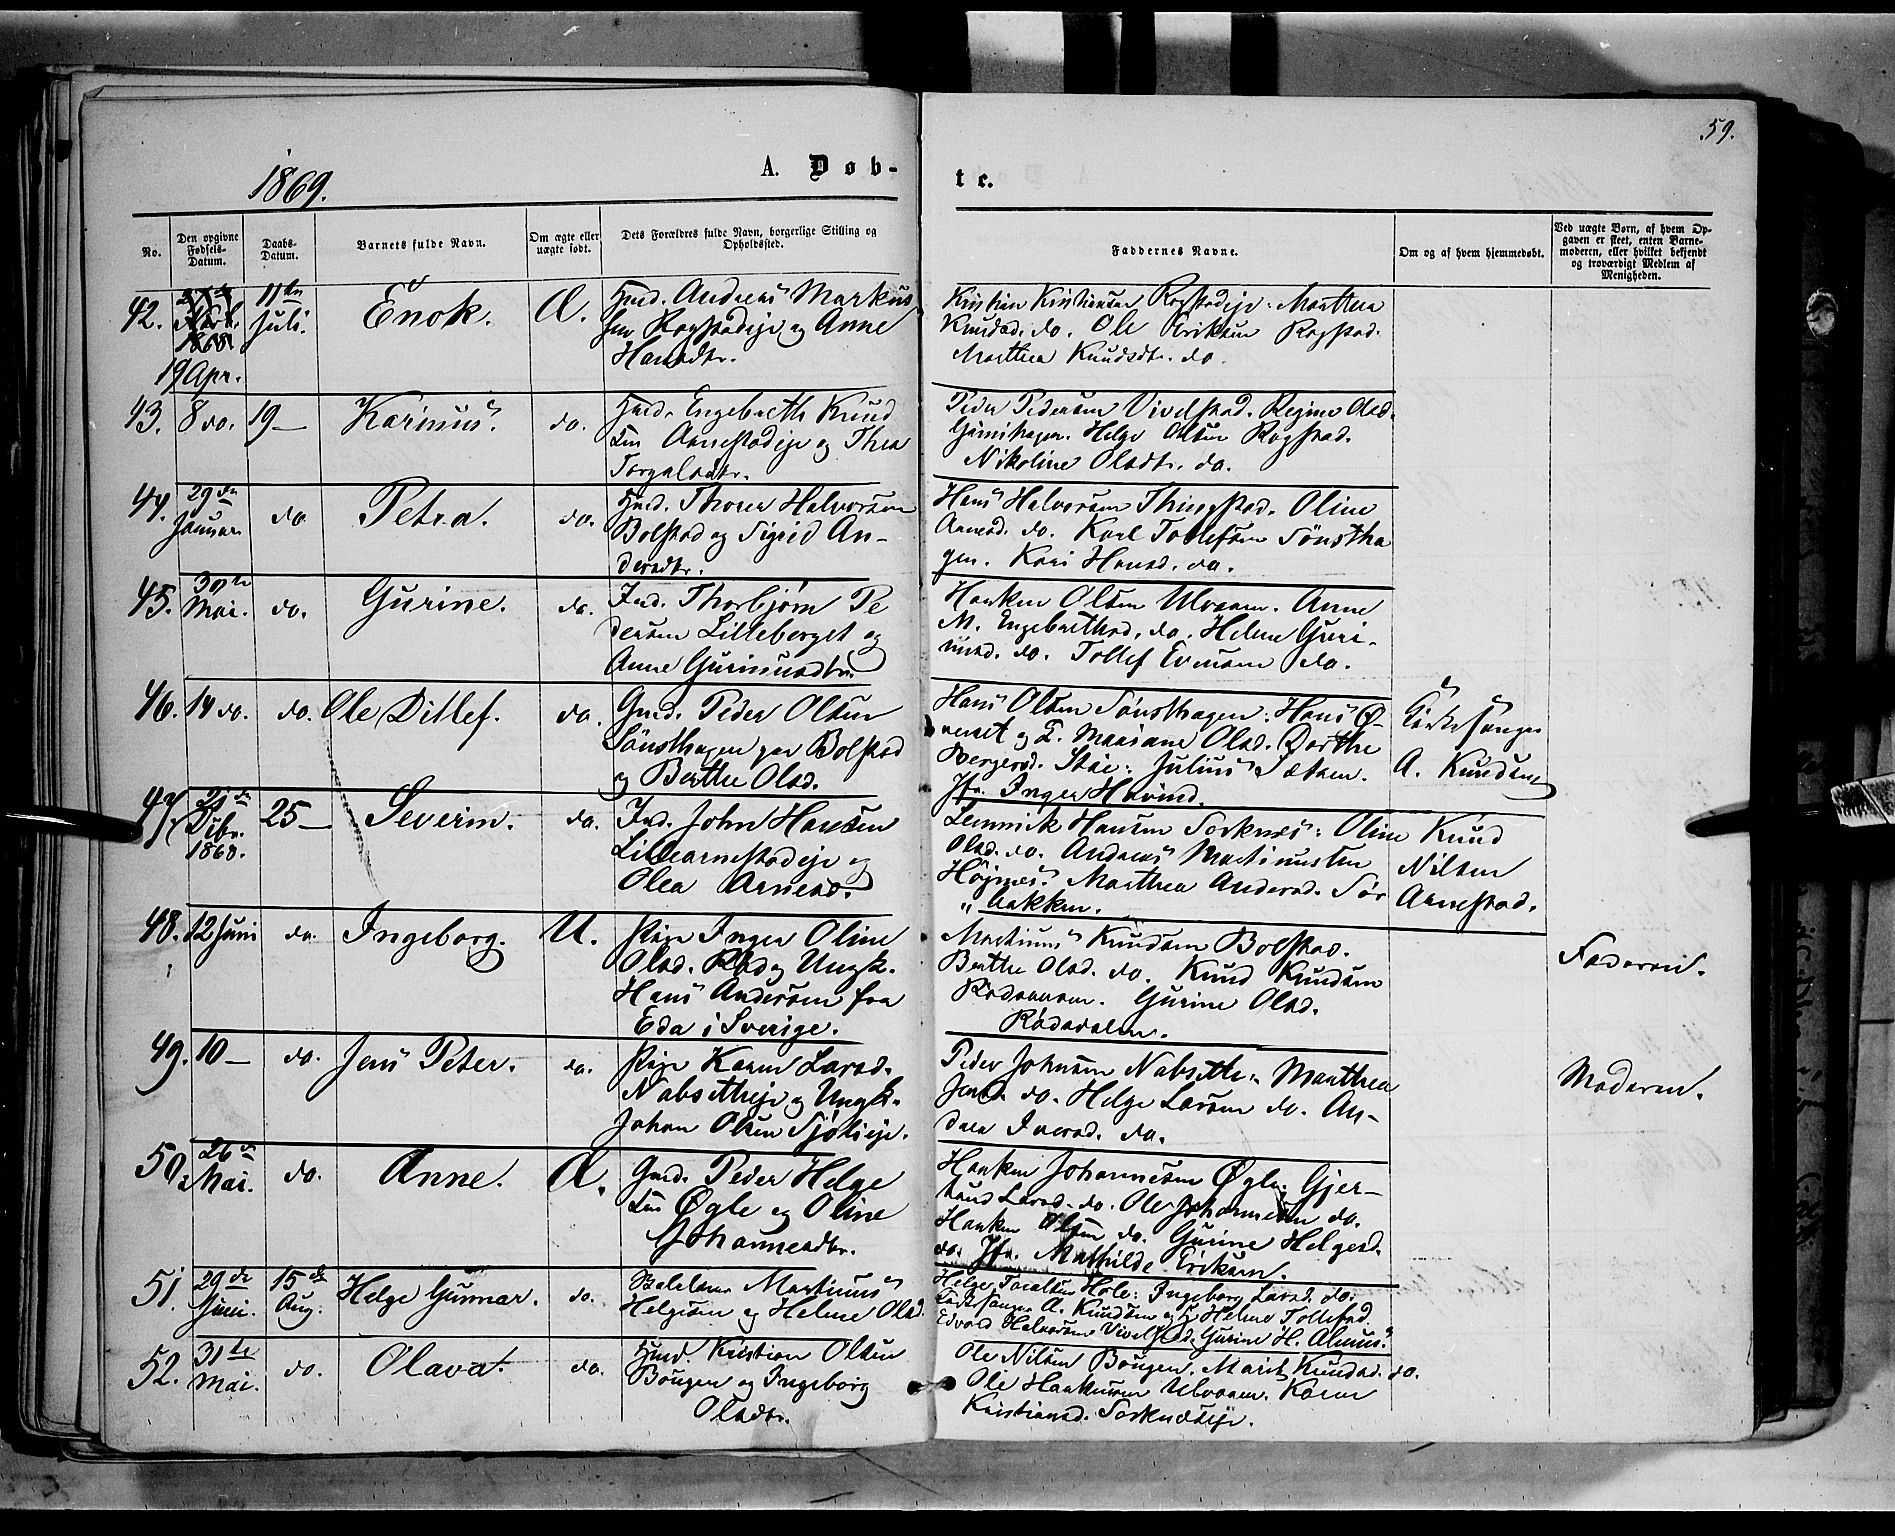 59.
1869.
A. Døb-
te.
No.
Den opgivne Fødsels-Datum.
Daabs-Datum.
Barnets fulde Navn.
Om ægte eller uægte født.
Dets Forældres fulde Navn, borgerlige Stilling og Opholdssted.
Faddernes Navne.
Om og af hvem hjemmedøbt.
Ved uægte Børn, af hvem Opgaven er skeet, enten Barnemoderen, eller hvilket bekjendt og troværdigt Medlem af Menigheden.
42.
1868.
19 Apr.
11te Juli.
Enok.
Æ.
Husd. Andreas Markus
sen Rogstadeje og Anne
Hansdtr.
Kristian Kristiansen Rogstadeje. Marthea
Knudsd. do. Ole Eriksen Rogstad.
Marthea Knudsdtr. do.
43.
8 do.
19 —
Karinus.
do.
Husd. Engebreth Knud
sen Arnestadeje og Thea
Torgalsdtr.
Peder Pedersen Vivelstad. Regine Olsd.
Helge Olsen Rogstad.
Nikoline Olsdtr. do.
44.
29de Januar
do.
Petra.
do.
Husd. Thorer Halvorsen
Bolstad og Sigrid An-
dersdtr.
Hans Halvorsen Thingstad. Oline
Arnesd. do. Karl Tollefsen Sønstha
gen. Kari Hansd. do.
45.
30te Mai.
do.
Gurine.
do.
Ind. Thorbjørn Pe
dersen Lilleberget og
Anne Gurinusdtr.
Haaken Olsen Ulvaaen. Anne
M. Engebrethsd. do. Helene Guri-
nusd. do. Tollef Evensen do.
46.
14 do.
do.
Ole Ditlef.
do.
Gmd. Peder Olsen
Sønsthagen paa Bolstad
og Berthe Olsd.
Hans Olsen Sønsthagen. Hans Ø-
verset og H. Mariane Olsd. Dorthe
Bergersd. Stai. Julius Sætren.
Jfr. Inger Havind.
Kirkesanger
A. Knudsen
47.
21de Dcbr. 1868.
25 —
Severin.
do.
Ind. John Hansen
Lillearnestadeje og
Olea Arnesd.
Lennick Hansen Sorknæs. Oline
Olsd. do. Andreas Martinussen
Højnes. Marthea Andersd. Sør
bakken.
Knud
Nilsen
Arnestad.
48.
12 Juni
do.
Ingeborg.
U.
Pige Inger Oline
Olsd. Rød og Ungk.
Hans Andersen fra
Eda i Sverige.
Martinus Knudsen Bolstad.
Berthe Olsd. do. Knud Knudsen
Gurine Olsd.
Rødsdalen.
Faderen.
49.
10 —
do.
Jens Peter.
do.
Pige Karen Larsd.
Nabsetheje og Ungk.
Johan Olsen Sjølieje.
Peder Johnsen Nabseth. Marthea
Jensd. do. Helge Larsen do. An-
drea Iversd. do.
Moderen.
50.
26de Mai.
do.
Anne.
Æ.
Gmd. Peder Helge
sen Øgle og Oline
Johannesdtr.
Haaken Johannesen Øgle. Gjer-
traud Larsd. do. Ole Johannesen do.
Haaken Olsen do. Gurine Helgesd.
do. Jfr. Mathilde Eriksen.
51.
29de Juni.
15de Aug.
Helge Gunnar.
do.
Martinus
Helgesen og Helene Olsd.
Helge Hole. Ingeborg Larsd. do.
Kirkesanger A. Knudsen og H. Helene Tollefsd.
Edvard Halvorsen Vivelstad. Gurine H. Almus.
52.
31te Mai.
do.
Olava.
do.
Husd. Kristian Olsen
Bougen og Ingeborg
Olsdtr.
Ole Nilsen Bougen. Marit Knudsd. do.
Ole Haakensen Ulvaaen. Karen
Kristiansd. Sorknæseje.